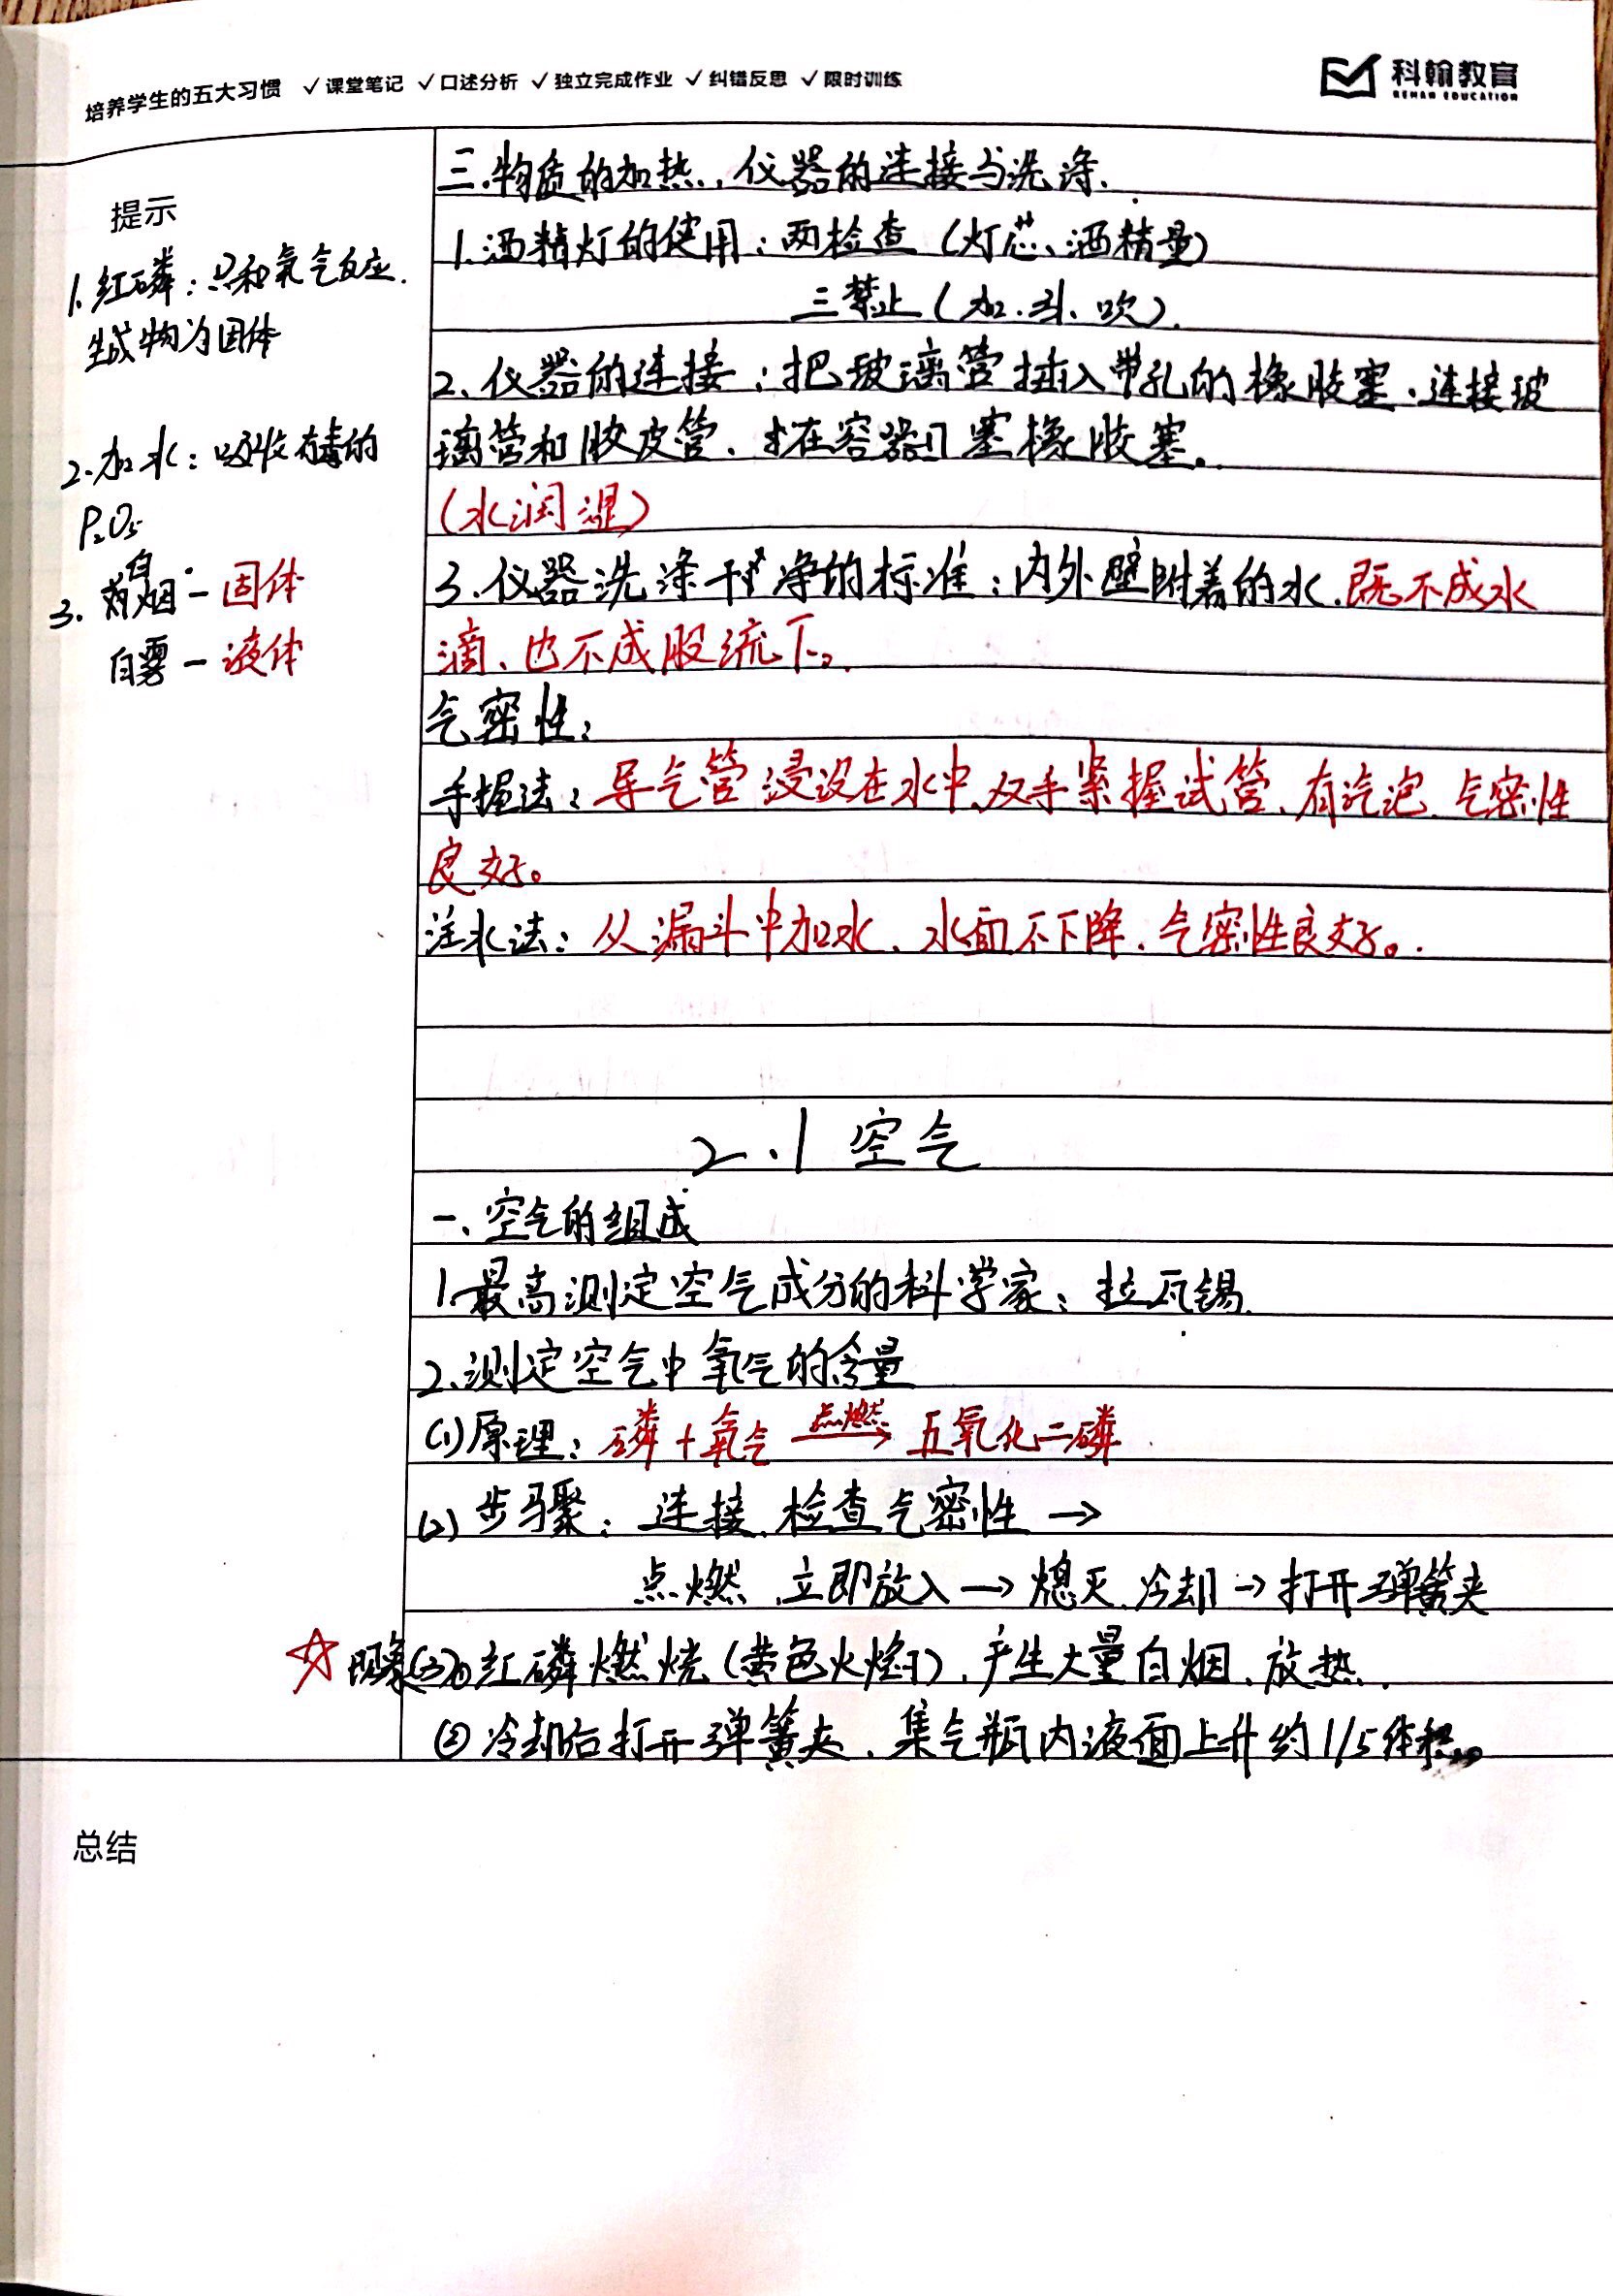 培养学生的五大习惯 ✓课堂笔记 ✓口述分析 ✓独立完成作业 ✓纠错反思 ✓限时训练
科翰教育
三.物质的加热.,仪器的连接与洗涤.
提示
1.酒精灯的使用:两检查(灯芯、酒精量)
三禁止(加.引.吹).
1.红磷:只和氧气反应.
生成物为固体
2.仪器的连接:把玻璃管插入带孔的橡胶塞.连接玻
璃管和胶皮管.才在容器口塞橡胶塞.
(水润湿)
2.加水:吸收有毒的
P₂O₅
3. 白烟-固体
白雾-液体
3.仪器洗涤干净的标准:内外壁附着的水.既不成水
滴、也不成股流下。
气密性:
手握法:导气管浸没在水中,双手紧握试管、有汽泡.气密性
良好。
注水法:从漏斗中加水、水面不下降.气密性良好。
2.1 空气
一、空气的组成
1.最高测定空气成分的科学家:拉瓦锡.
2.测定空气中氧气的含量
(1)原理:磷+氧气 点燃→ 五氧化二磷
(2)步骤:连接.检查气密性→
点燃.立即放入→熄灭.冷却→打开弹簧夹
☆现象(3)①红磷燃烧(黄色火焰).产生大量白烟.放热.
②冷却后打开弹簧夹.集气瓶内液面上升约1/5体积。
总结